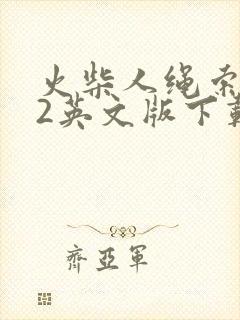 火柴人绳索
2英文版下载
齊亞軍